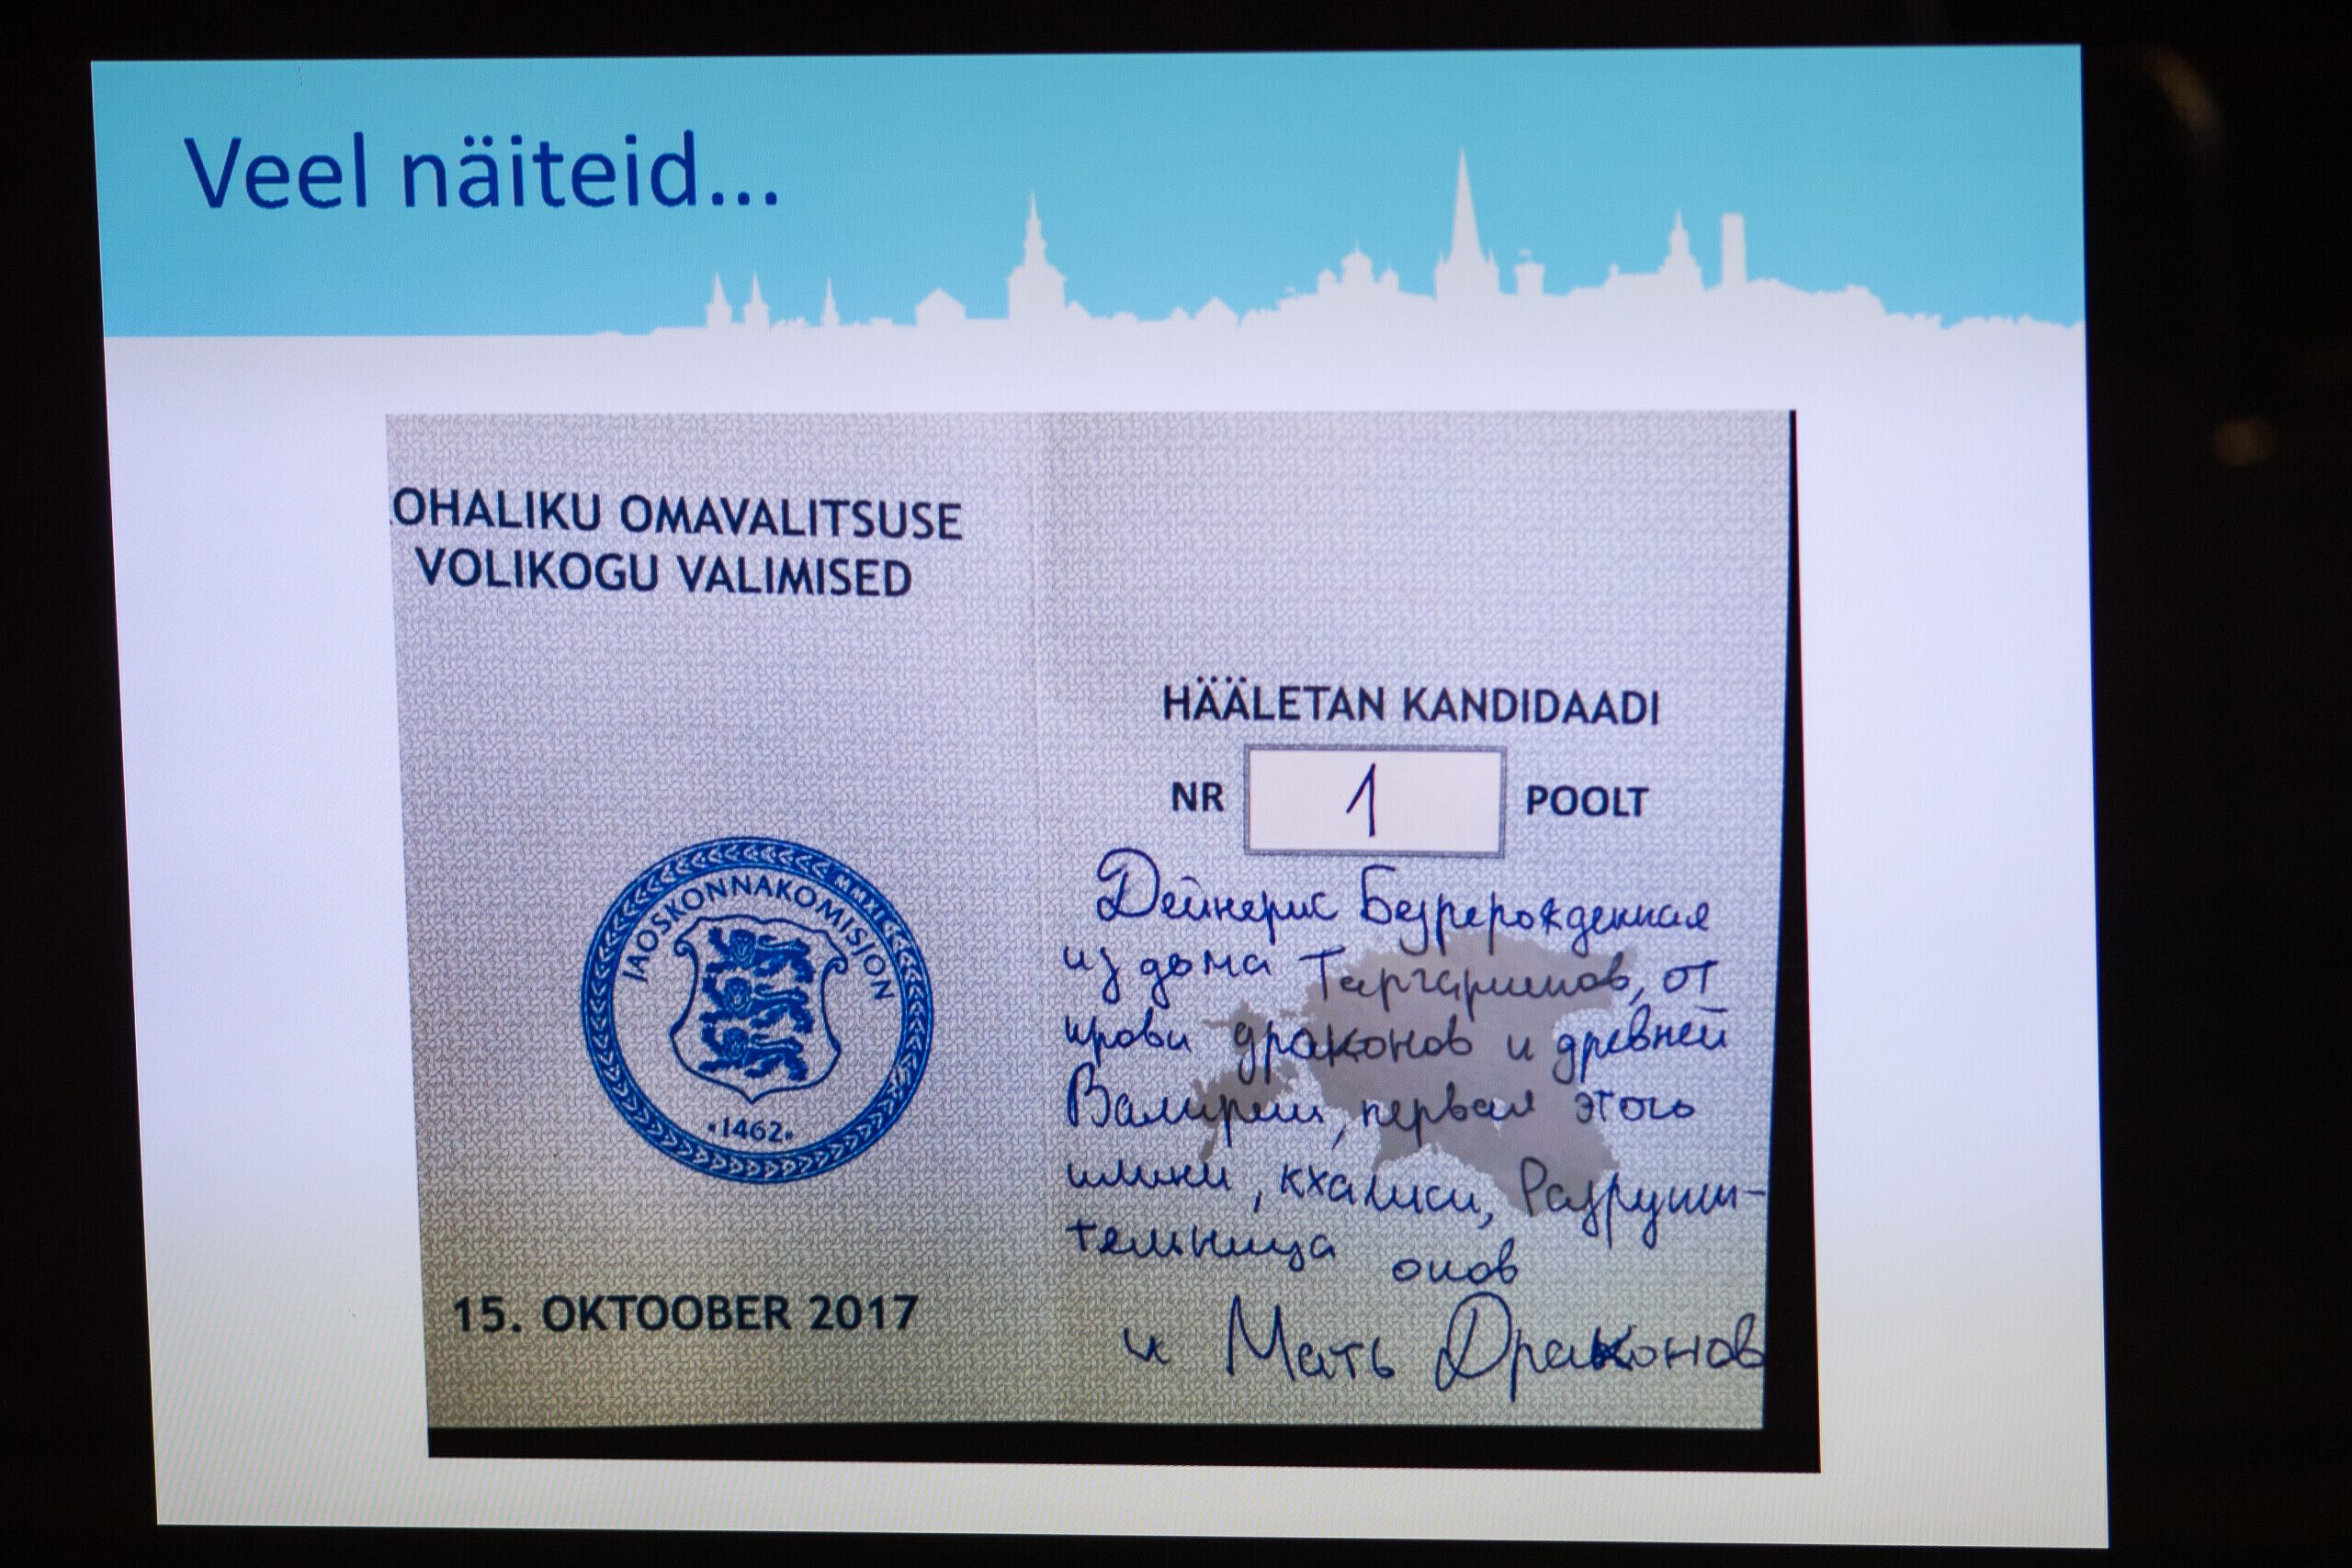 Veel näiteid...
OHALIKU OMAVALITSUSE
VOLIKOGU VALIMISED
JAOSKONNAKOMISJON
1462
15. OKTOOBER 2017
HÄÄLETAN KANDIDAADI
NR 1 POOLT
Дейнерис Безрерожденная
из дома Таргариенов, от
крови драконов и древней
Валирии, первая этого
имени, кхалиси, Разруши-
тельница оков
и Мать Драконов